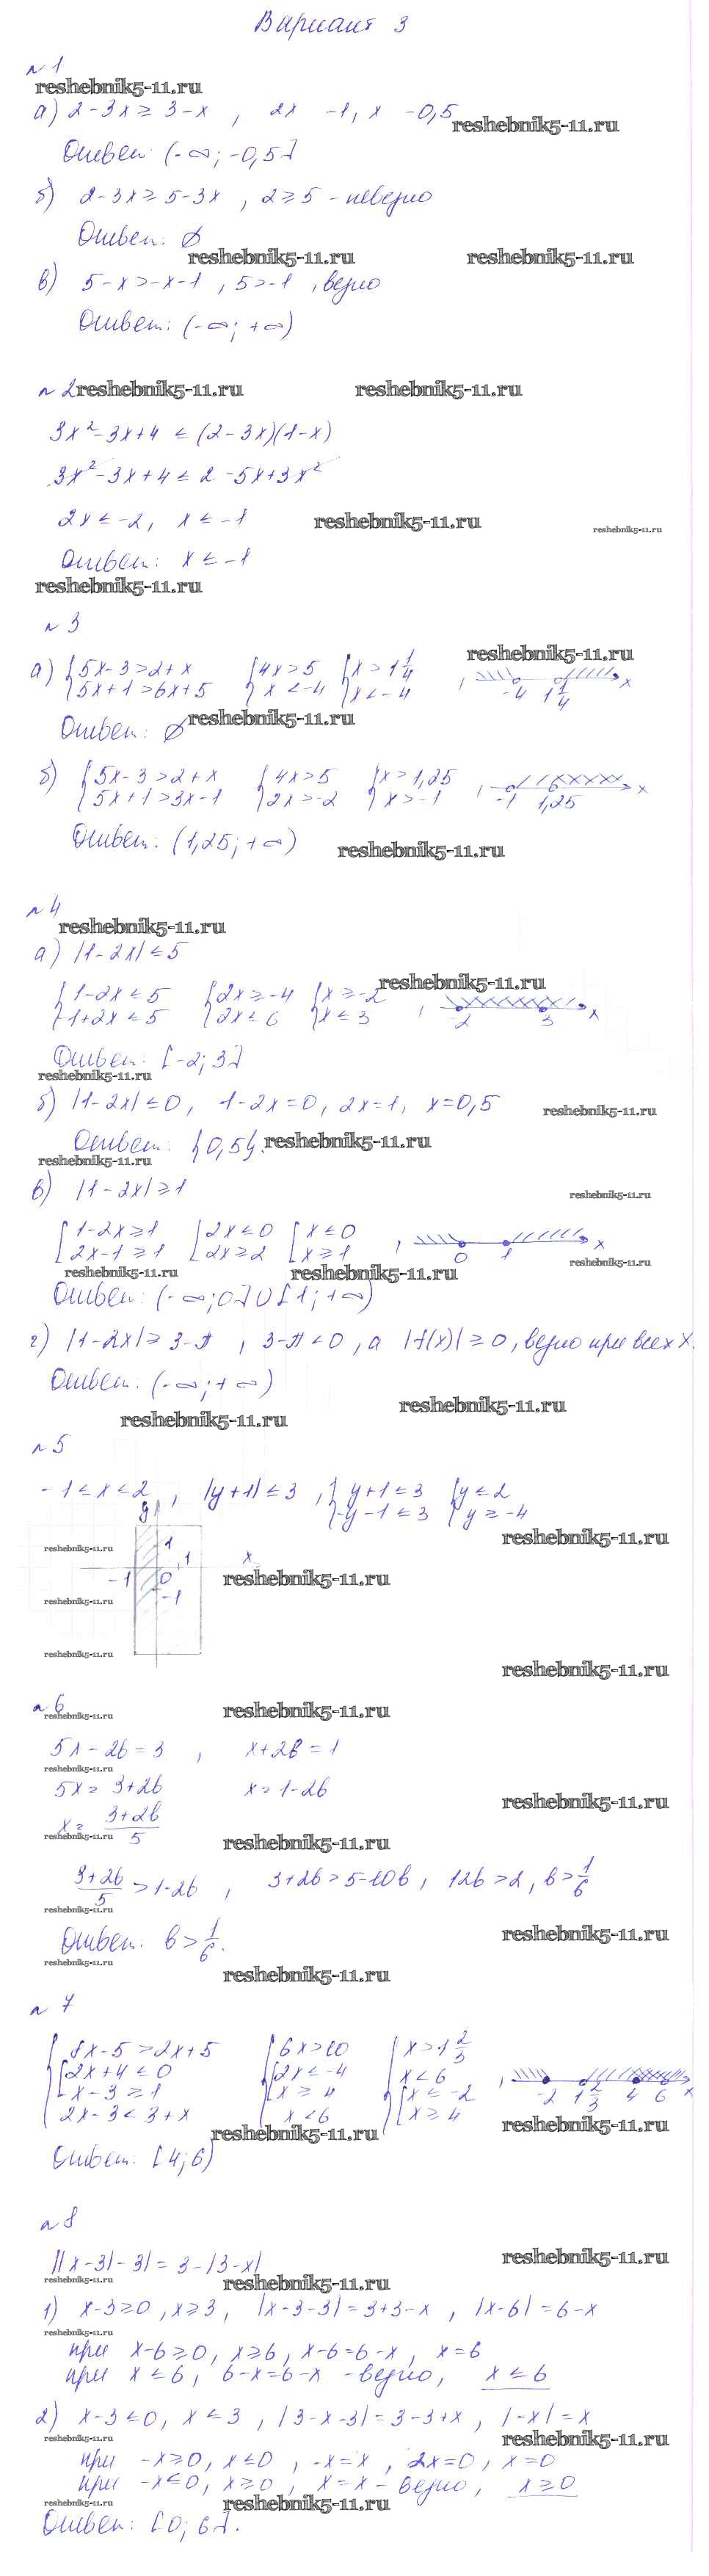 Вариант 3
№1
reshebnik5-11.ru
а) 2-3x ≥ 3-x , 2x -1, x -0,5
reshebnik5-11.ru
Ответ: (-∞; -0,5]
б) 2-3x ≥ 5-3x , 2 ≥ 5 - неверно
Ответ: ∅
reshebnik5-11.ru reshebnik5-11.ru
в) 5-x > -x-1 , 5 > -1 , верно
Ответ: (-∞; +∞)
№2 reshebnik5-11.ru reshebnik5-11.ru
3x²-3x+4 ≤ (2-3x)(1-x)
3x²-3x+4 ≤ 2-5x+3x²
2x ≤ -2, x ≤ -1 reshebnik5-11.ru reshebnik5-11.ru
Ответ: x ≤ -1
reshebnik5-11.ru
№3
reshebnik5-11.ru
а) { 5x-3 > 2+x { 4x > 5 { x > 1 1/4
{ 5x+1 > 6x+5 { x < -4 { x < -4 , -4 1 1/4 x
Ответ: ∅ reshebnik5-11.ru
б) { 5x-3 > 2+x { 4x > 5 { x > 1,25
{ 5x+1 > 3x-1 { 2x > -2 { x > -1 , -1 1,25 x
Ответ: (1,25; +∞) reshebnik5-11.ru
№4
reshebnik5-11.ru
а) |1-2x| ≤ 5
reshebnik5-11.ru
{ 1-2x ≤ 5 { 2x ≥ -4 { x ≥ -2
{ -1+2x ≤ 5 { 2x ≤ 6 { x ≤ 3 , -2 3 x
Ответ: [-2; 3]
reshebnik5-11.ru
б) |1-2x| ≤ 0, 1-2x=0, 2x=1, x=0,5 reshebnik5-11.ru
Ответ: {0,5}. reshebnik5-11.ru
reshebnik5-11.ru
в) |1-2x| ≥ 1 reshebnik5-11.ru
[ 1-2x ≥ 1 [ 2x ≤ 0 [ x ≤ 0
[ 2x-1 ≥ 1 [ 2x ≥ 2 [ x ≥ 1 , 0 1 x
reshebnik5-11.ru reshebnik5-11.ru reshebnik5-11.ru
Ответ: (-∞; 0] U [1; +∞)
г) |1-2x| ≥ 3-π , 3-π < 0, а |f(x)| ≥ 0, верно при всех x.
Ответ. (-∞; +∞)
reshebnik5-11.ru reshebnik5-11.ru
№5
-1 ≤ x < 2 , |y+1| ≤ 3 , { y+1 ≤ 3 { y ≤ 2
{ -y-1 ≤ 3 { y ≥ -4
y
reshebnik5-11.ru
reshebnik5-11.ru 1 1 x
-1 0 reshebnik5-11.ru
reshebnik5-11.ru -1
reshebnik5-11.ru reshebnik5-11.ru
№6
reshebnik5-11.ru reshebnik5-11.ru
5x-2b=3 , x+2b=1
reshebnik5-11.ru
5x = 3+2b x = 1-2b
reshebnik5-11.ru
x = (3+2b)/5
reshebnik5-11.ru reshebnik5-11.ru
(3+2b)/5 > 1-2b , 3+2b > 5-10b , 12b > 2 , b > 1/6
reshebnik5-11.ru
Ответ: b > 1/6. reshebnik5-11.ru
reshebnik5-11.ru reshebnik5-11.ru
№7
{ 8x-5 > 2x+5 { 6x > 10 { x > 1 2/3
{ [ 2x+4 ≤ 0 { [ 2x ≤ -4 { x < 6
{ [ x-3 ≥ 1 { [ x ≥ 4 { [ x ≤ -2 , -2 1 2/3 4 6 x
{ 2x-3 < 3+x { x < 6 { [ x ≥ 4
reshebnik5-11.ru reshebnik5-11.ru
Ответ: [4; 6)
№8
||x-3|-3| = 3-|3-x| reshebnik5-11.ru
reshebnik5-11.ru reshebnik5-11.ru
1) x-3 ≥ 0, x ≥ 3, |x-3-3| = 3+3-x , |x-6| = 6-x
reshebnik5-11.ru
при x-6 ≥ 0, x ≥ 6, x-6=6-x , x=6
при x ≤ 6, 6-x=6-x - верно, x ≤ 6
2) x-3 ≤ 0, x ≤ 3 , |3-x-3| = 3-3+x , |-x| = x
reshebnik5-11.ru reshebnik5-11.ru
при -x ≥ 0, x ≤ 0 , -x=x , 2x=0, x=0
при -x ≤ 0, x ≥ 0 , x=x - верно, x ≥ 0
reshebnik5-11.ru reshebnik5-11.ru
Ответ: [0; 6].